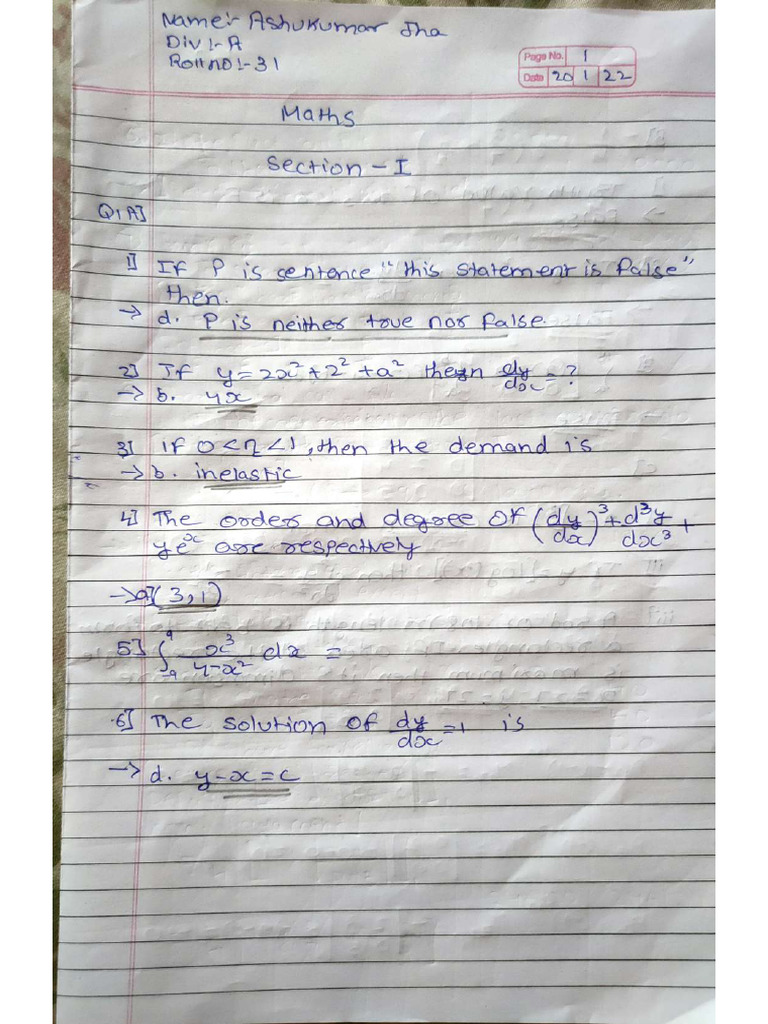 Name:- Ashukumar Jha
Div :- A
Roll no :- 31
Page No. 1
Date 20 1 22
Maths
Section - I
Q1 A]
1] If P is sentence "this statement is false"
then.
→ d. P is neither true nor false.
2] If y = 2x² + 2² + a² then dy/dx = ?
→ b. 4x
3] if 0 < η < 1, then the demand is
→ b. inelastic
4] The order and degree of (dy/dx)³ + d³y/dx³ +
yeˣ are respectively
→ a] (3, 1)
5] ∫₋₉⁹ x³/4-x² dx =
6] The solution of dy/dx = 1 is
→ d. y-x = c